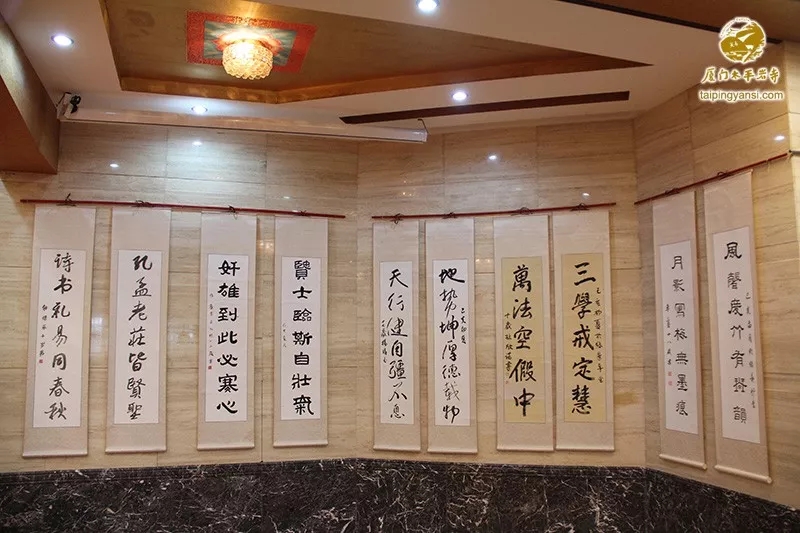 厦门太平岩寺
taipingyansi.com
風聲度竹有琴韻
月影寫梅無墨痕
三學戒定慧
萬法空假中
地势坤厚德载物
天行健自彊不息
賢士臨斯自壯氣
奸雄到此必寒心
孔孟老莊皆賢聖
诗书礼易同春秋